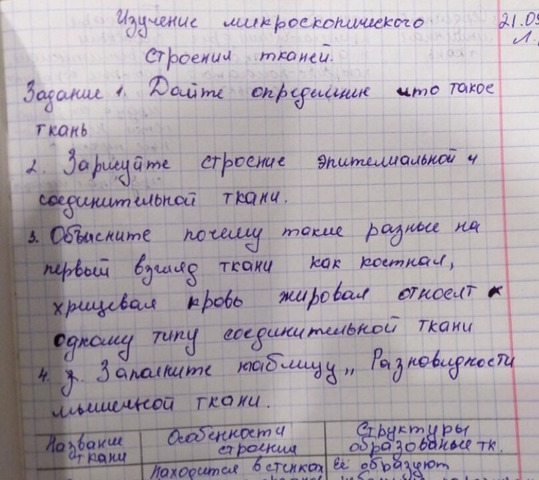 Изучение микроскопического 21.09
строения тканей. Л.
Задание 1. Дайте определение что такое
ткань
2. Зарисуйте строение эпителиальной и
соединительной ткани.
3. Объясните почему такие разные на
первый взгляд ткани как костная,
хрящевая кровь жировая относят к
одному типу соединительной ткани
4. Заполните таблицу „Разновидности
мышечной ткани.
Название ткани Особенности строения Структуры образованые тк.
находится в стенках Её образуют